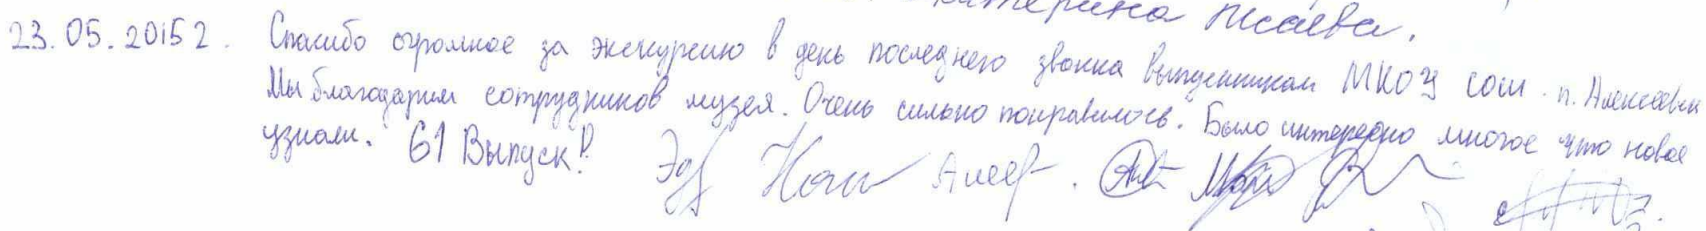 Катерина Исаева.
23.05.2015 г. Спасибо огромное за экскурсию в день последнего звонка выпускникам МКОУ сош п. Алексеевск
Мы благодарим сотрудников музея. Очень сильно понравилось. Было интересно многое что новое
узнали. 61 Выпуск!